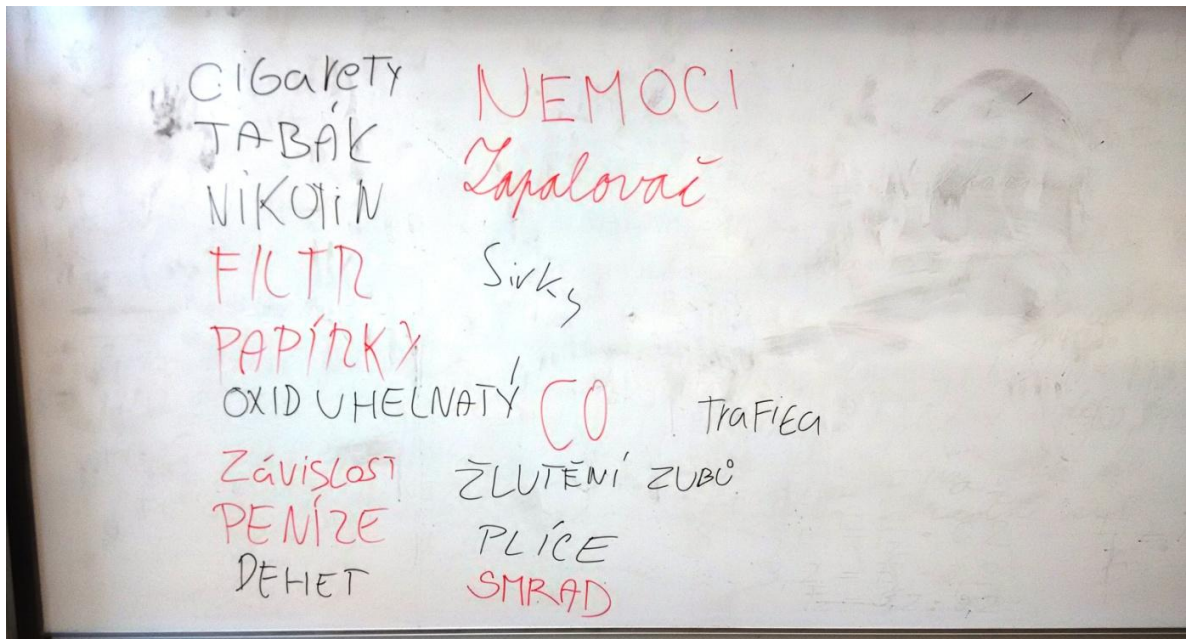 CIGARETY
TABÁK
NIKOTIN
FILTR
PAPÍRKY
OXID UHELNATÝ CO
ZÁVISLOST
PENÍZE
DEHET
NEMOCI
Zapalovač
Sirky
TRAFIKA
ŽLUTĚNÍ ZUBŮ
PLÍCE
SMRAD